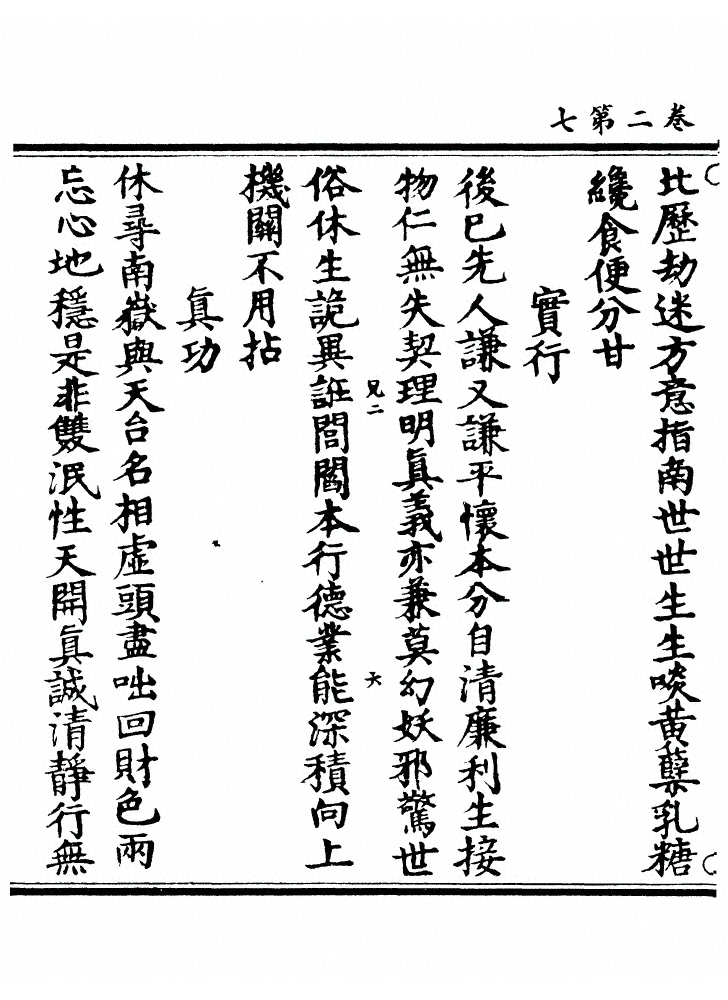 卷二第七
比歷劫迷方意指南世世生生啖黃蘗乳糖
纔食便分甘
實行
後已先人謙又謙平懷本分自清廉利生接
物仁無失契理明眞義亦兼莫幻妖邪驚世
俗休生詭異誑閭閻本行德業能深積向上
機關不用拈
眞功
休尋南嶽與天台名相虛頭盡咄回財色兩
忘心地穩是非雙泯性天開眞誠清靜行無
兄二
大